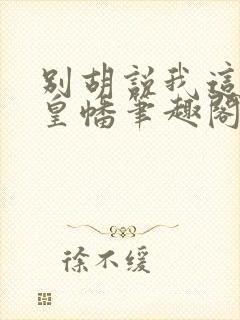 别胡说我这
皇幡笔趣阁
徐不缓